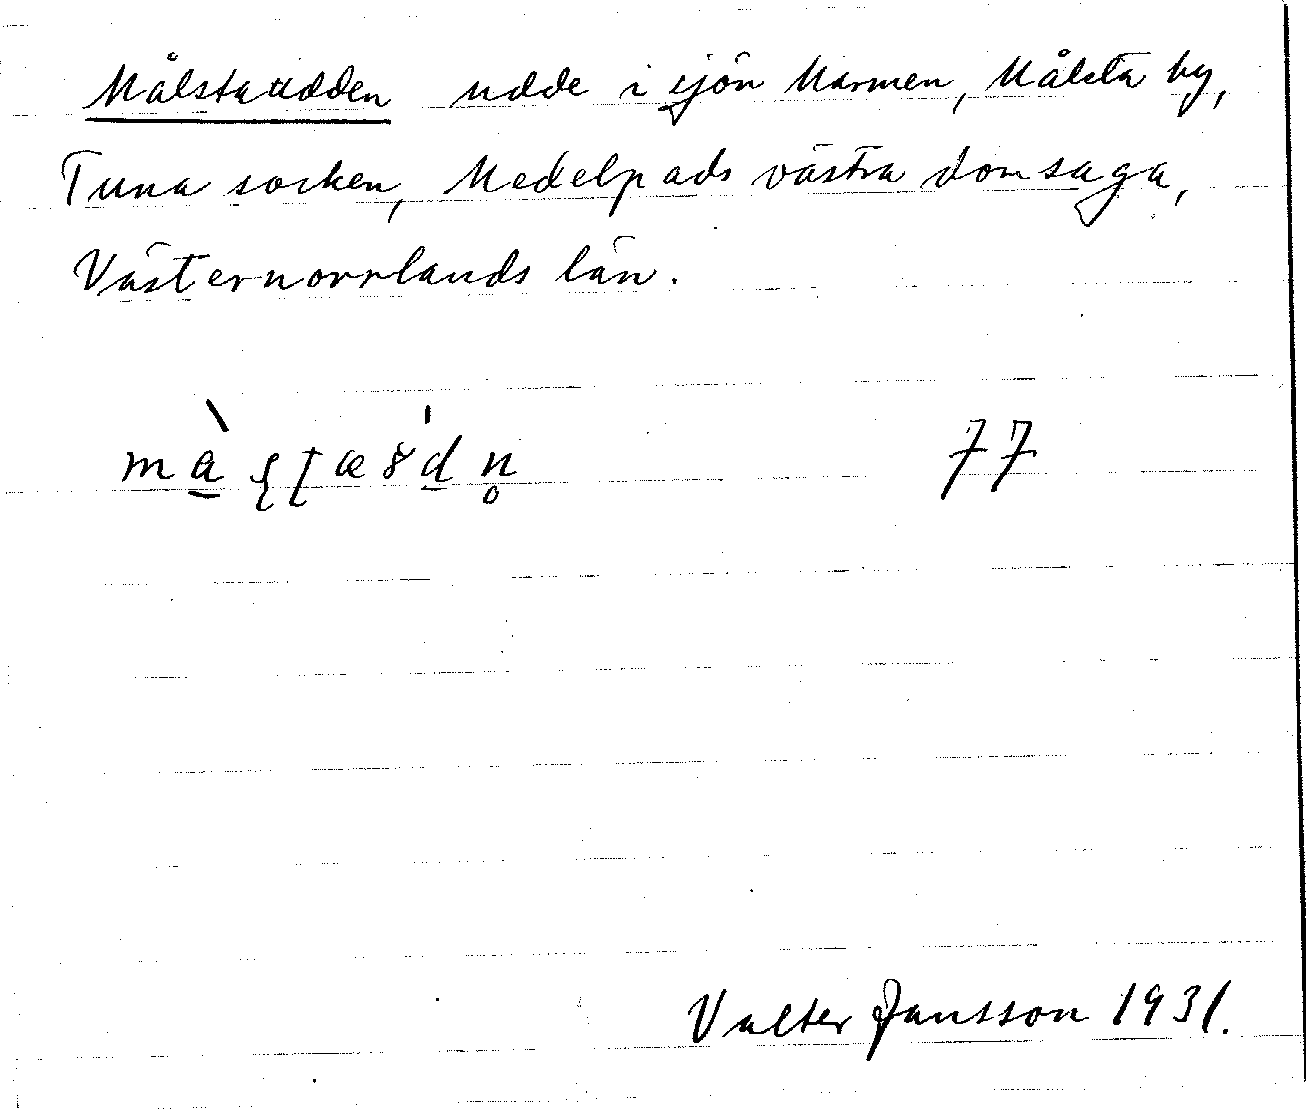 Målstaudden udde i sjön Marmen, Målsta by,
Tuna socken, Medelpads västra domsaga,
Västernorrlands län.
màʂʈæ8'dn̥ 77
Valter Jansson 1931.